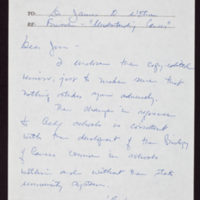 TO: Dr. James D.
RE: "Understanding Cancer"
Dear Jim -
I enclose the copy-edited
version, just to make sure that
nothing strikes you adversely.
The change in reference
to only schools is consistent
with the development of the Biology
of Cancer courses in schools
within and without the state
university system.